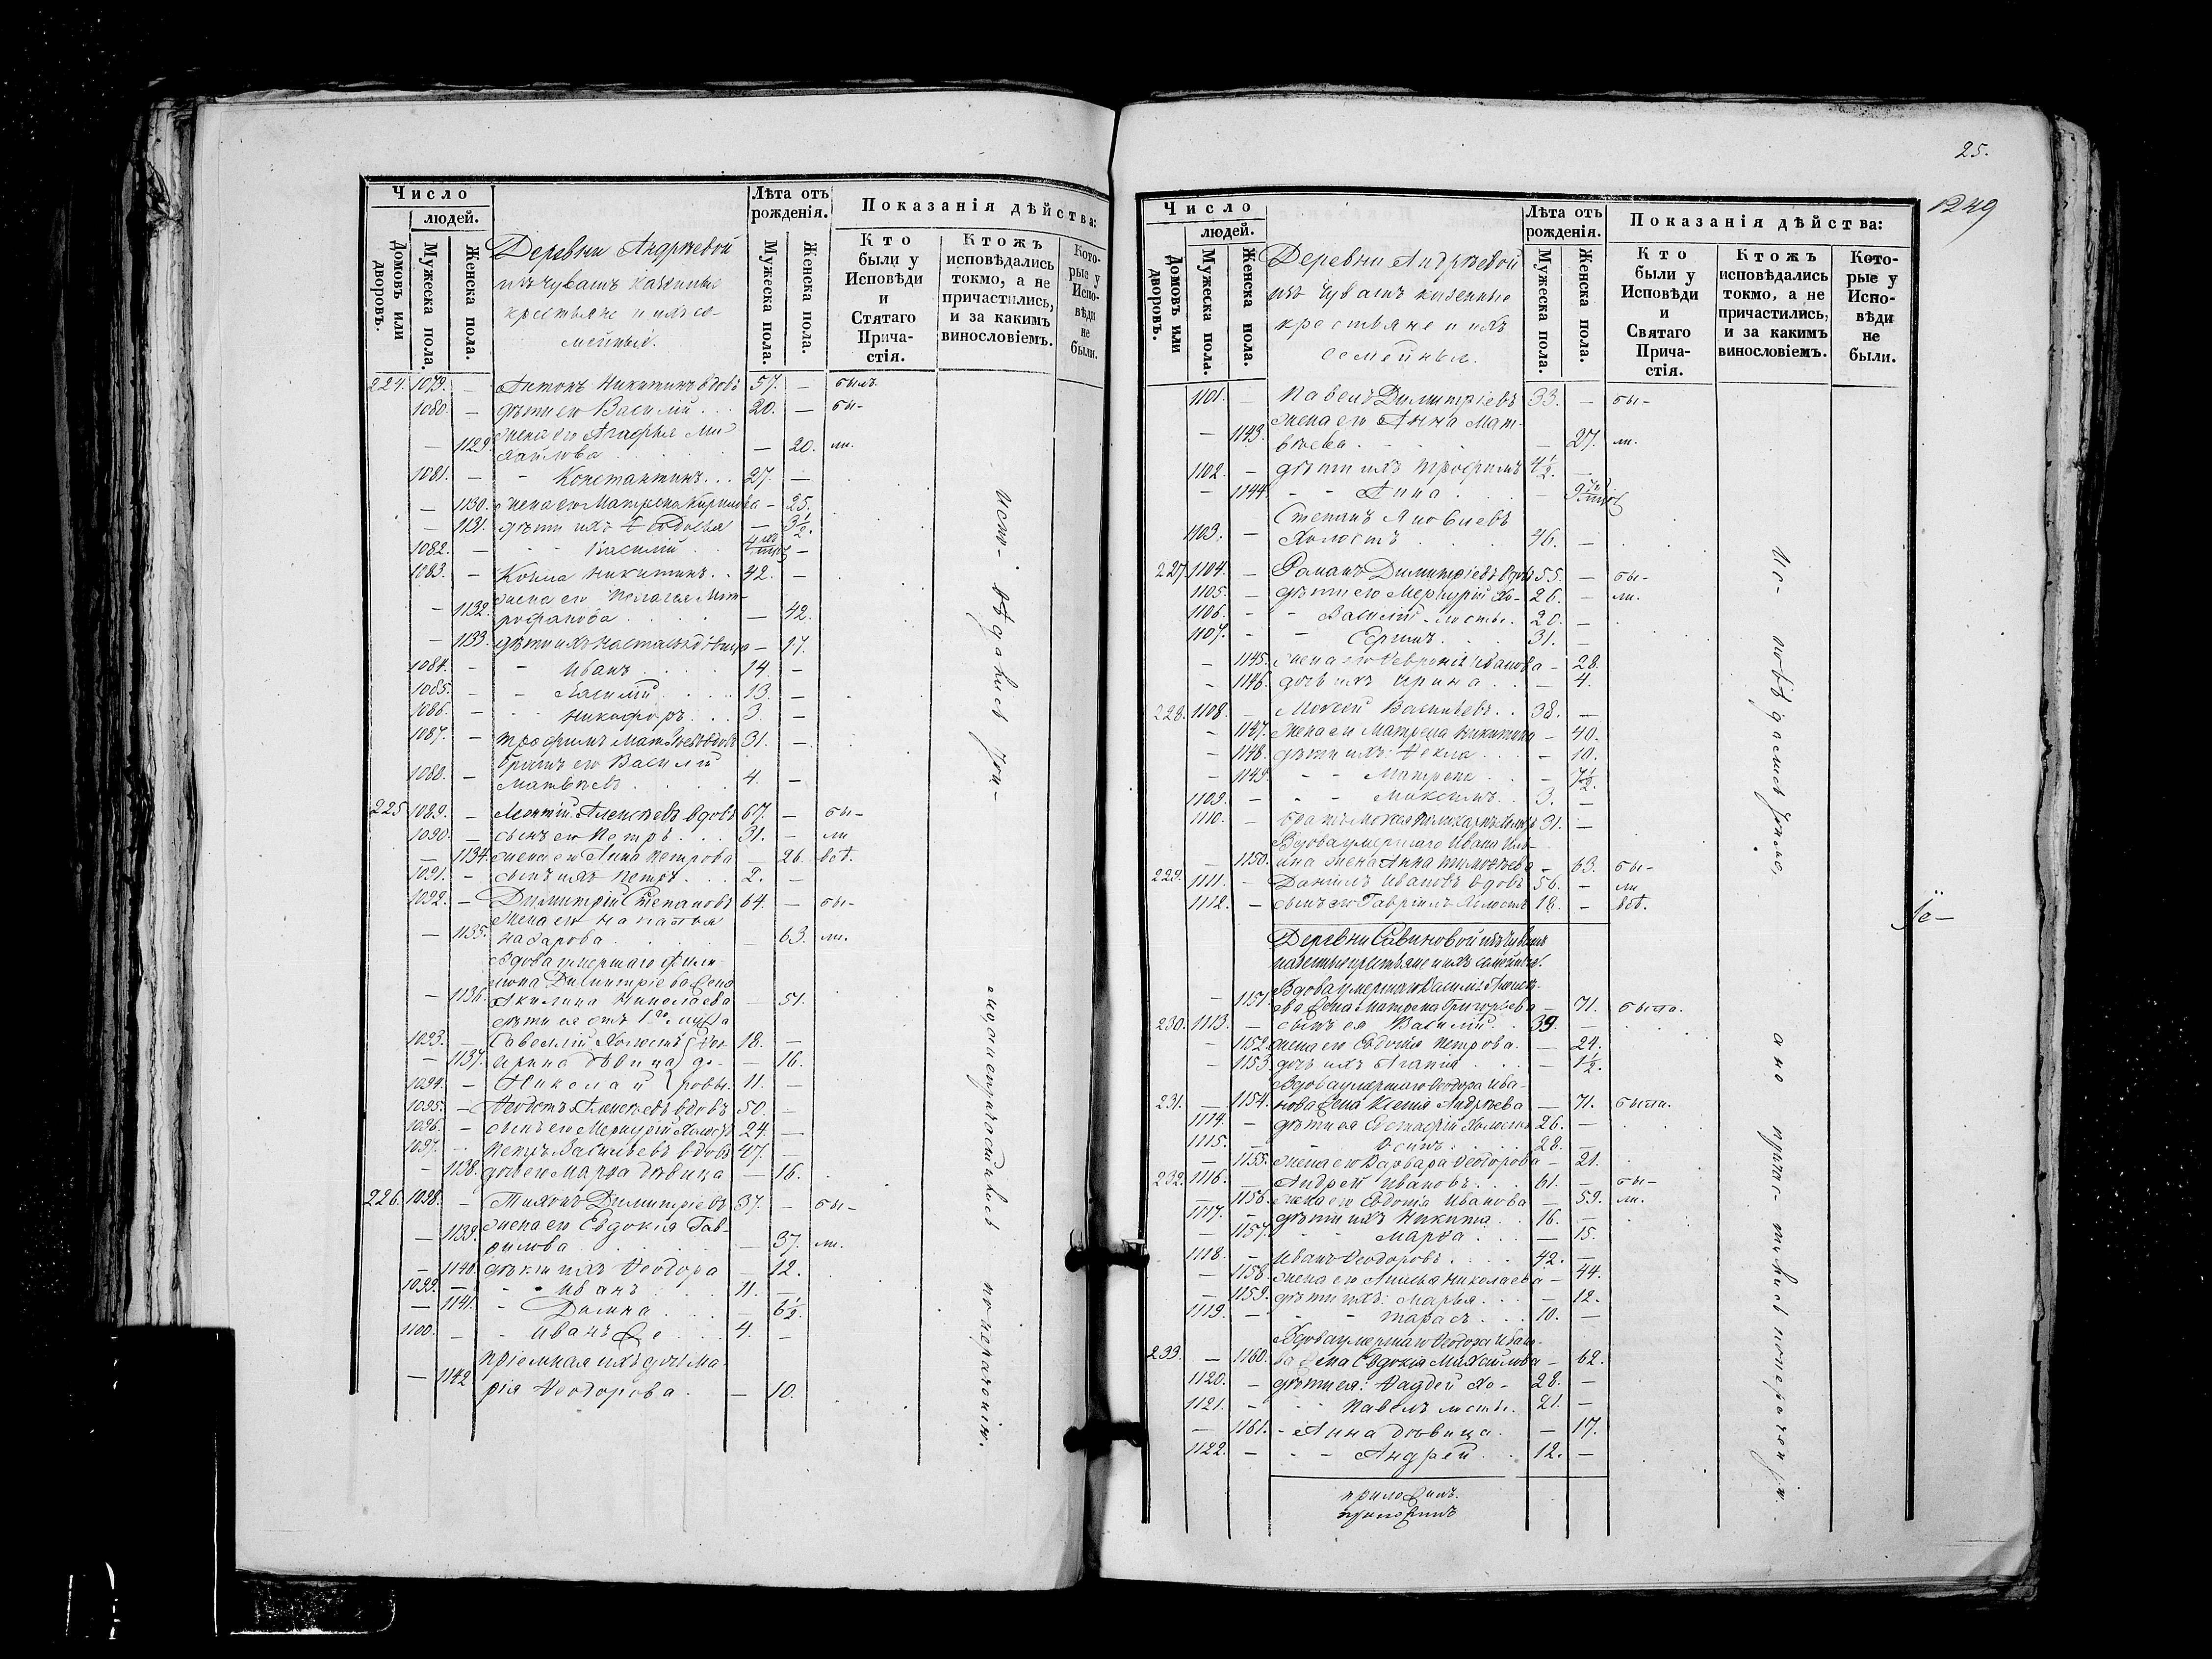 Число
людей.
Домовъ или дворовъ.
Мужеска пола.
Женска пола.
Деревни Андрѣевой
изъ чувашъ казенные
крестьяне и ихъ се-
мейныя.
Лѣта отъ рожденія.
Мужеска пола.
Женска пола.
Показанія дѣйства:
Кто были у Исповѣди и Стятаго Прича-стія.
Ктожъ исповѣдались токмо, а не причастились, и за какимъ винословіемъ.
Кото-рые у Испо-вѣди не были.
224. 1079. — Антонъ Никитинъ вдовъ 57. — былъ
1080. — дѣти его Василій . . . 20. — бы-
жена его Агафья Ми-
— 1129. хайлова — 20. ли.
1081. — - Константинъ . . . 27. —
— 1130. жена его Матрена Кирилова — 25.
— 1131. дѣти ихъ Евдокья — 3½.
1082. — - - Василій . . 4 —
1083. — Козма Никитинъ . . 42. —
жена его Пелагея Мит-
— 1132. рофанова . . . . — 42.
— 1133. дѣти ихъ Настасья дѣвица — 17.
1084. — - Иванъ . . . . 14. —
1085. — - Василій . . . . 13. —
1086. — - Никифоръ . . . 3. —
1087. — Трофимъ Матвѣевъ вдовъ 31. —
братъ его Василій
1088. — Матвѣевъ . . . . 4. —
225 1089. — Леонтій Алексѣевъ вдовъ 67. — бы-
1090. — сынъ его Петръ . . . 31. — ли
— 1134. жена его Анна Петрова — 26. всѣ.
1091. — сынъ ихъ Петръ . . . 2. —
1092. — Димитрій Степановъ 64. — бы-
жена его
— 1135. Назарова . . . . — 63. ли.
Вдова умершаго Фили-
пона Димитріева жена
— 1136. Акилина Николаева — 51.
дѣти ея отъ 1го мужа
1093. — Савелій холостъ Фео- 18. —
— 1137. Ирина дѣвица до- — 16.
1094. — Николай ровы. 11. —
1095. — Феодотъ Алексѣевъ вдовъ 50. —
1096. — сынъ его Меркурій холостъ 24. —
1097. — Петръ Васильевъ вдовъ 47. —
— 1138. дочь его Марфа дѣвица — 16.
226. 1098. — Тихонъ Димитріевъ 37. — бы-
жена его Евдокія Гав-
— 1139. рилова . . . . — 37. ли.
— 1140. дѣти ихъ Феодора — 12.
1099. — - Иванъ . . . . 11. —
— 1141. - Домна . . . . — 6½.
1100. — - Иванъ же . . . 4. —
пріемная ихъ дочь Ма-
— 1142 рія Феодорова . — 10.
Испо- вѣдались
но непричастились по нераченію.
25.
1249
Число
людей.
Домовъ или дворовъ.
Мужеска пола.
Женска пола.
Деревни Андрѣевой
изъ чувашъ казенные
крестьяне и ихъ
семейныя.
Лѣта отъ рожденія.
Мужеска пола.
Женска пола.
Показанія дѣйства:
Кто были у Исповѣди и Святаго Прича-стія.
Ктожъ исповѣдались токмо, а не причастились, и за какимъ винословіемъ.
Кото-рые у Испо-вѣди не были.
1101. — Павелъ Димитріевъ 33. — бы-
жена его Анна Мат-
— 1143. вѣева . . . . — 27. ли.
1102. — дѣти ихъ Трофимъ 4½. —
— 1144. - - Анна . . . — 9
Степанъ Яковлевъ
1103. — холостъ . . . . 46. —
227. 1104. — Романъ Димитріевъ вдовъ 55. — бы-
1105. — дѣти его Меркурій хо- 26. — ли.
1106. — - Василій лосты. 20. —
1107. — - Сергій . . . . 31. —
— 1145. жена его Февронія Иванова — 28.
— 1146. дочь ихъ Ирина . . — 4.
228. 1108. — Мокей Васильевъ . . 38. —
— 1147. жена его Матрена Никитина — 40.
— 1148. дѣти ихъ Фекла . . . — 10.
— 1149 - - Матрена . . . — 7½.
1109. — - - Максимъ . . 3. —
1110. — братъ Мокея холостъ 31. —
Вдова умершаго Ивана Иль-
— 1150. ина жена Анна Тимофѣева — 63. бы-
229. 1111. — Даніилъ Ивановъ вдовъ 56. — ли
1112. — сынъ его Гавріилъ холостъ 18. — всѣ.
Деревни Савиновой изъ чувашъ
казенные крестьяне и ихъ семейныя.
Вдова умершаго Василья Алексѣ-
— 1151. ева жена Матрена Григорьева — 71. была.
230. 1113. — сынъ ея Василій . . 39. —
— 1152. жена его Евдотія Петрова . — 24.
— 1153 дочь ихъ Агапія . . . — 1½.
Вдова умершаго Феодора Ива-
231. — 1154. нова жена Ксенія Андрѣева — 71. была.
1114. — дѣти ея Евстафій холостъ 26. —
1115. — - Осипъ . . . . 28. —
— 1155. жена его Варвара Феодорова — 21.
232. 1116. — Андрей Ивановъ . . . 61. — бы-
— 1156. жена его Евдотія Иванова — 59. ли.
1117. — дѣти ихъ Никита . . 16. —
— 1157. - - Марфа . . . — 15.
1118. — Иванъ Феодоровъ . . . . 42. —
— 1158. жена его Анисья Николаева — 44.
— 1159. дѣти ихъ: Марья . . . — 12.
1119. — - - Тарасъ . . . 10. —
Вдова умершаго Феодора Ивано-
233. — 1160. ва жена Евдокія Михайлова — 62.
1120. — дѣти ея: Фадей хо- 28. —
1121. — - - Павелъ лосты. 21. —
— 1161. - Анна дѣвица . — 17.
1122. — - - Андрей . . 12. —
Ис- повѣдались
но прича- тились по нераченію.